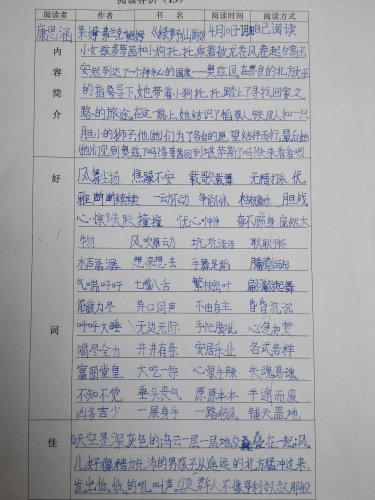 阅读存折（15）
阅读者 作者 书名 阅读时间 阅读方式
康思涵 莱姆·弗兰克·鲍姆 《绿野仙踪》 4月10日 自己阅读
内容简介
小女孩多萝茜和小狗托托,被龙卷风卷起的房子
安然到达了一个神秘的国度——奥兹国,在善良的北方女巫
的指导下,她带着小狗托托踏上了寻找回家之
路的旅途,在这一路上她结识了稻草人、铁皮人和一只
胆小的狮子,他(她)们为了各自的愿望结伴而行,最后她
他们见到奥兹了吗?多萝茜回到堪萨斯了吗?快来看看吧!
好词
风卷尘扬 焦躁不安 载歌载舞 无精打采 优
雅 断断续续 一动不动 胆战
心惊 跌跌撞撞 忧心忡忡 奋不顾身 庞然大
物 风吹草动 坑坑洼洼
水声潺潺 想来想去 手舞足蹈
气喘吁吁 七嘴八舌 繁枝密叶 翩翩起舞
筋疲力尽 异口同声 不由自主 昏昏沉沉
呼呼大睡 无边无际 手忙脚乱 心急如焚
竭尽全力 井井有条 安居乐业 各式各样
富丽堂皇 大吃一惊 心狠手辣 失魂落魄
不知不觉 垂头丧气 原原本本 半途而废
凶多吉少 一展身手 一路顺风 铺天盖地
佳
①天空是深灰色的,乌云一层一层地交叠在一起;风
儿好像精力充沛的男孩子从遥远的北方猛冲过来,
发出低低的吼叫声。